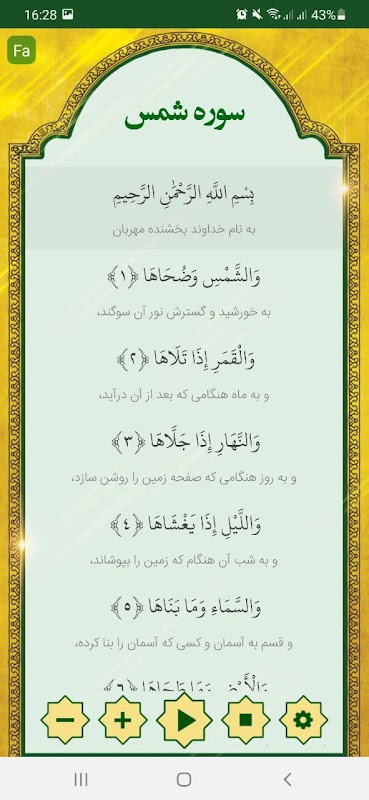 16:28 43%
Fa
سوره شمس
بِسْمِ اللَّهِ الرَّحْمَٰنِ الرَّحِيمِ
به نام خداوند بخشنده مهربان
وَالشَّمْسِ وَضُحَاهَا ﴿١﴾
به خورشید و گسترش نور آن سوگند،
وَالْقَمَرِ إِذَا تَلَاهَا ﴿٢﴾
و به ماه هنگامی که بعد از آن درآید،
وَالنَّهَارِ إِذَا جَلَّاهَا ﴿٣﴾
و به روز هنگامی که صفحه زمین را روشن سازد،
وَاللَّيْلِ إِذَا يَغْشَاهَا ﴿٤﴾
و به شب آن هنگام که زمین را بپوشاند،
وَالسَّمَاءِ وَمَا بَنَاهَا ﴿٥﴾
و قسم به آسمان و کسی که آسمان را بنا کرده،
وَالْأَرْضِ وَمَا طَحَاهَا ﴿٦﴾